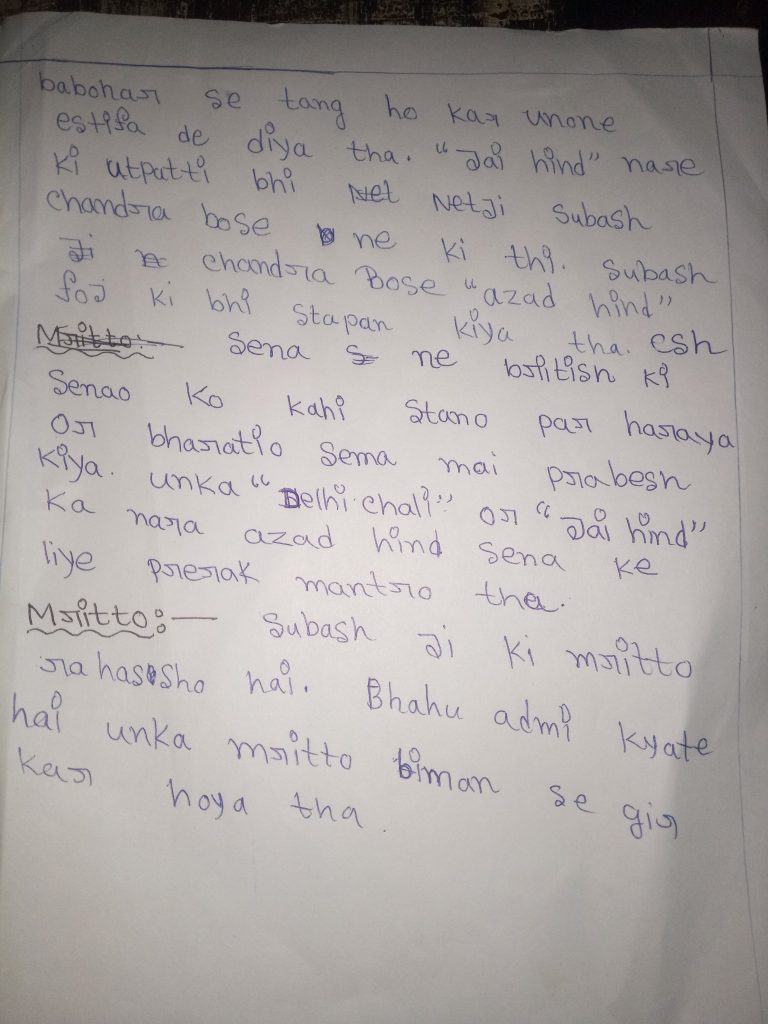 babohar se tang ho kar unone
estifa de diya tha. "Jai hind" nare
ki utpatti bhi Net Netji Subash
Chandra bose ne ki thi. Subash
Ji n chandra Bose "azad hind"
foj ki bhi stapan kiya tha. esh
Mritto:- Sena s ne british ki
Senao ko kahi stano par haraya
or bharatio sema mai prabesh
kiya. unka "Delhi chali" or "Jai hind"
ka nara azad hind sena ke
liye prerak mantro tha.
Mritto:- Subash Ji ki mritto
rahassho hai. Bhahu admi kyate
hai unka mritto biman se gir
kar hoya tha.